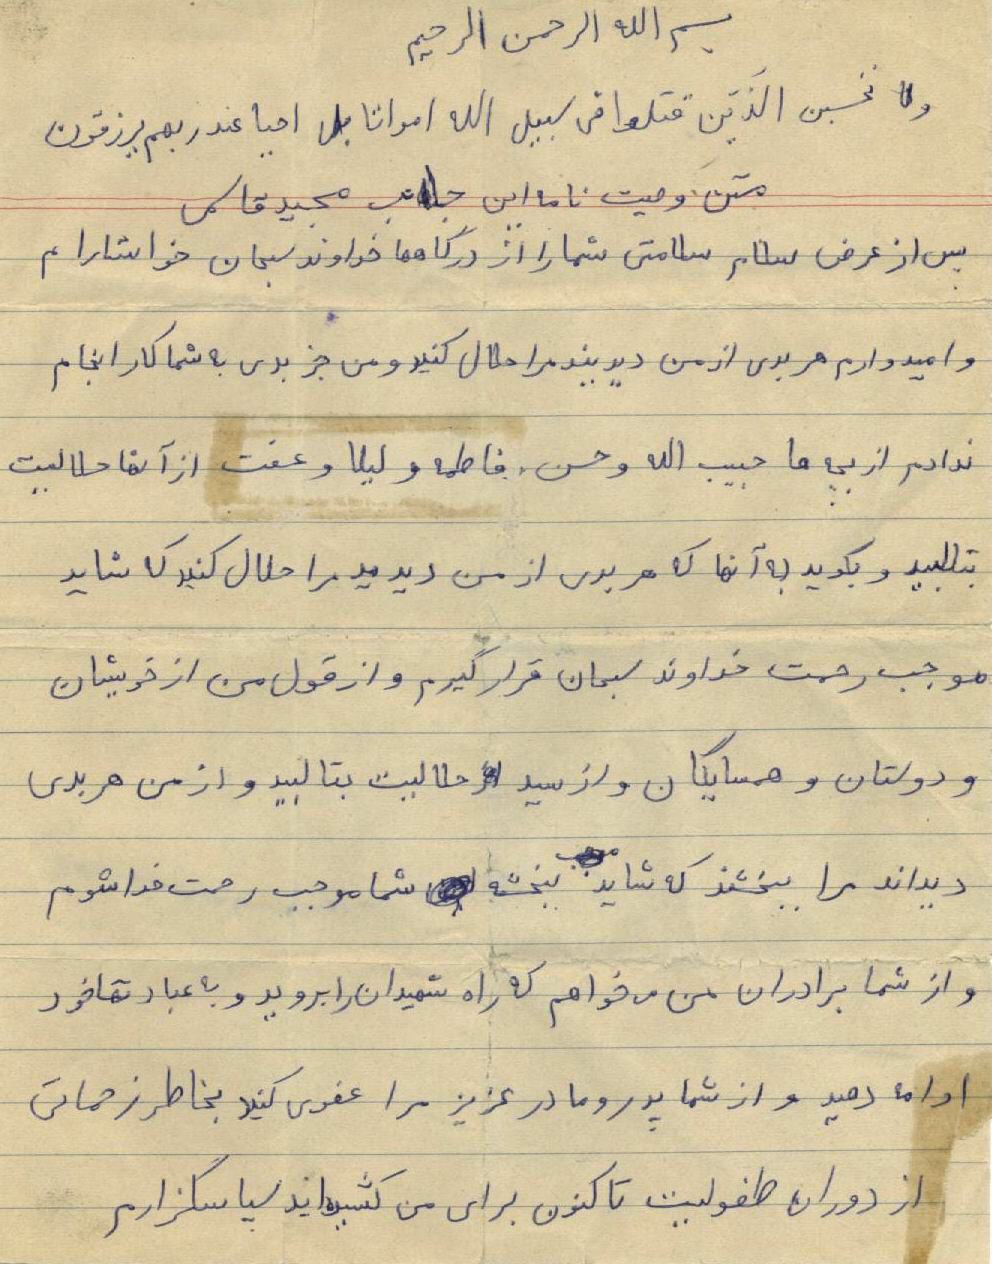 بسم الله الرحمن الرحیم
ولا تحسبن الذین قتلوا فی سبیل الله امواتا بل احیا عند ربهم یرزقون
متن وصیت نامه این جانب مجید قاسمی
پس از عرض سلام سلامتی شما را از درگاه خداوند سبحان خواستارام
و امیدوارم هر بدی از من دیدیند مرا حلال کنید و من جز بدی به شما کار انجام
ندادم از بچه ها حبیب الله و حسن، فاطمه و لیلا و عفت از آنها حلالیت
بتالبید و بگوید به آنها که هر بدی از من دیدید مرا حلال کنید که شاید
موجب رحمت خداوند سبحان قرار گیرم و از قول من از خویشان
و دوستان و همسایگان و از سید حلالیت بتالبید و از من هر بدی
دیداند مرا ببخشند که شاید ببخشه شما موجب رحمت خدا شوم
و از شما برادران من میخواهم که راه شهیدان را بروید و به عبادتها خود
ادامه دهید و از شما پدر و مادر عزیز مرا عفوی کنید بخاطر زحماتی
از دوران طفولیت تا کنون برای من کشیده‌اید سپاسگزارم